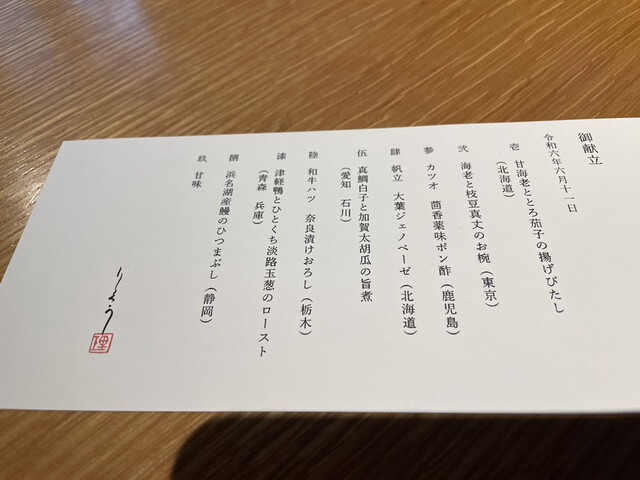 御献立
令和六年六月十一日
壱 甘海老ととろ茄子の揚げびたし
(北海道)
弐 海老と枝豆真丈のお椀(東京)
参 カツオ 茴香薬味ポン酢(鹿児島)
肆 帆立 大葉ジェノベーゼ(北海道)
伍 真鯛白子と加賀太胡瓜の旨煮
(愛知 石川)
陸 和牛ハツ 奈良漬けおろし(栃木)
漆 津軽鴨とひとくち淡路玉葱のロースト
(青森 兵庫)
捌 浜名湖産鰻のひつまぶし(静岡)
玖 甘味
りょう
理